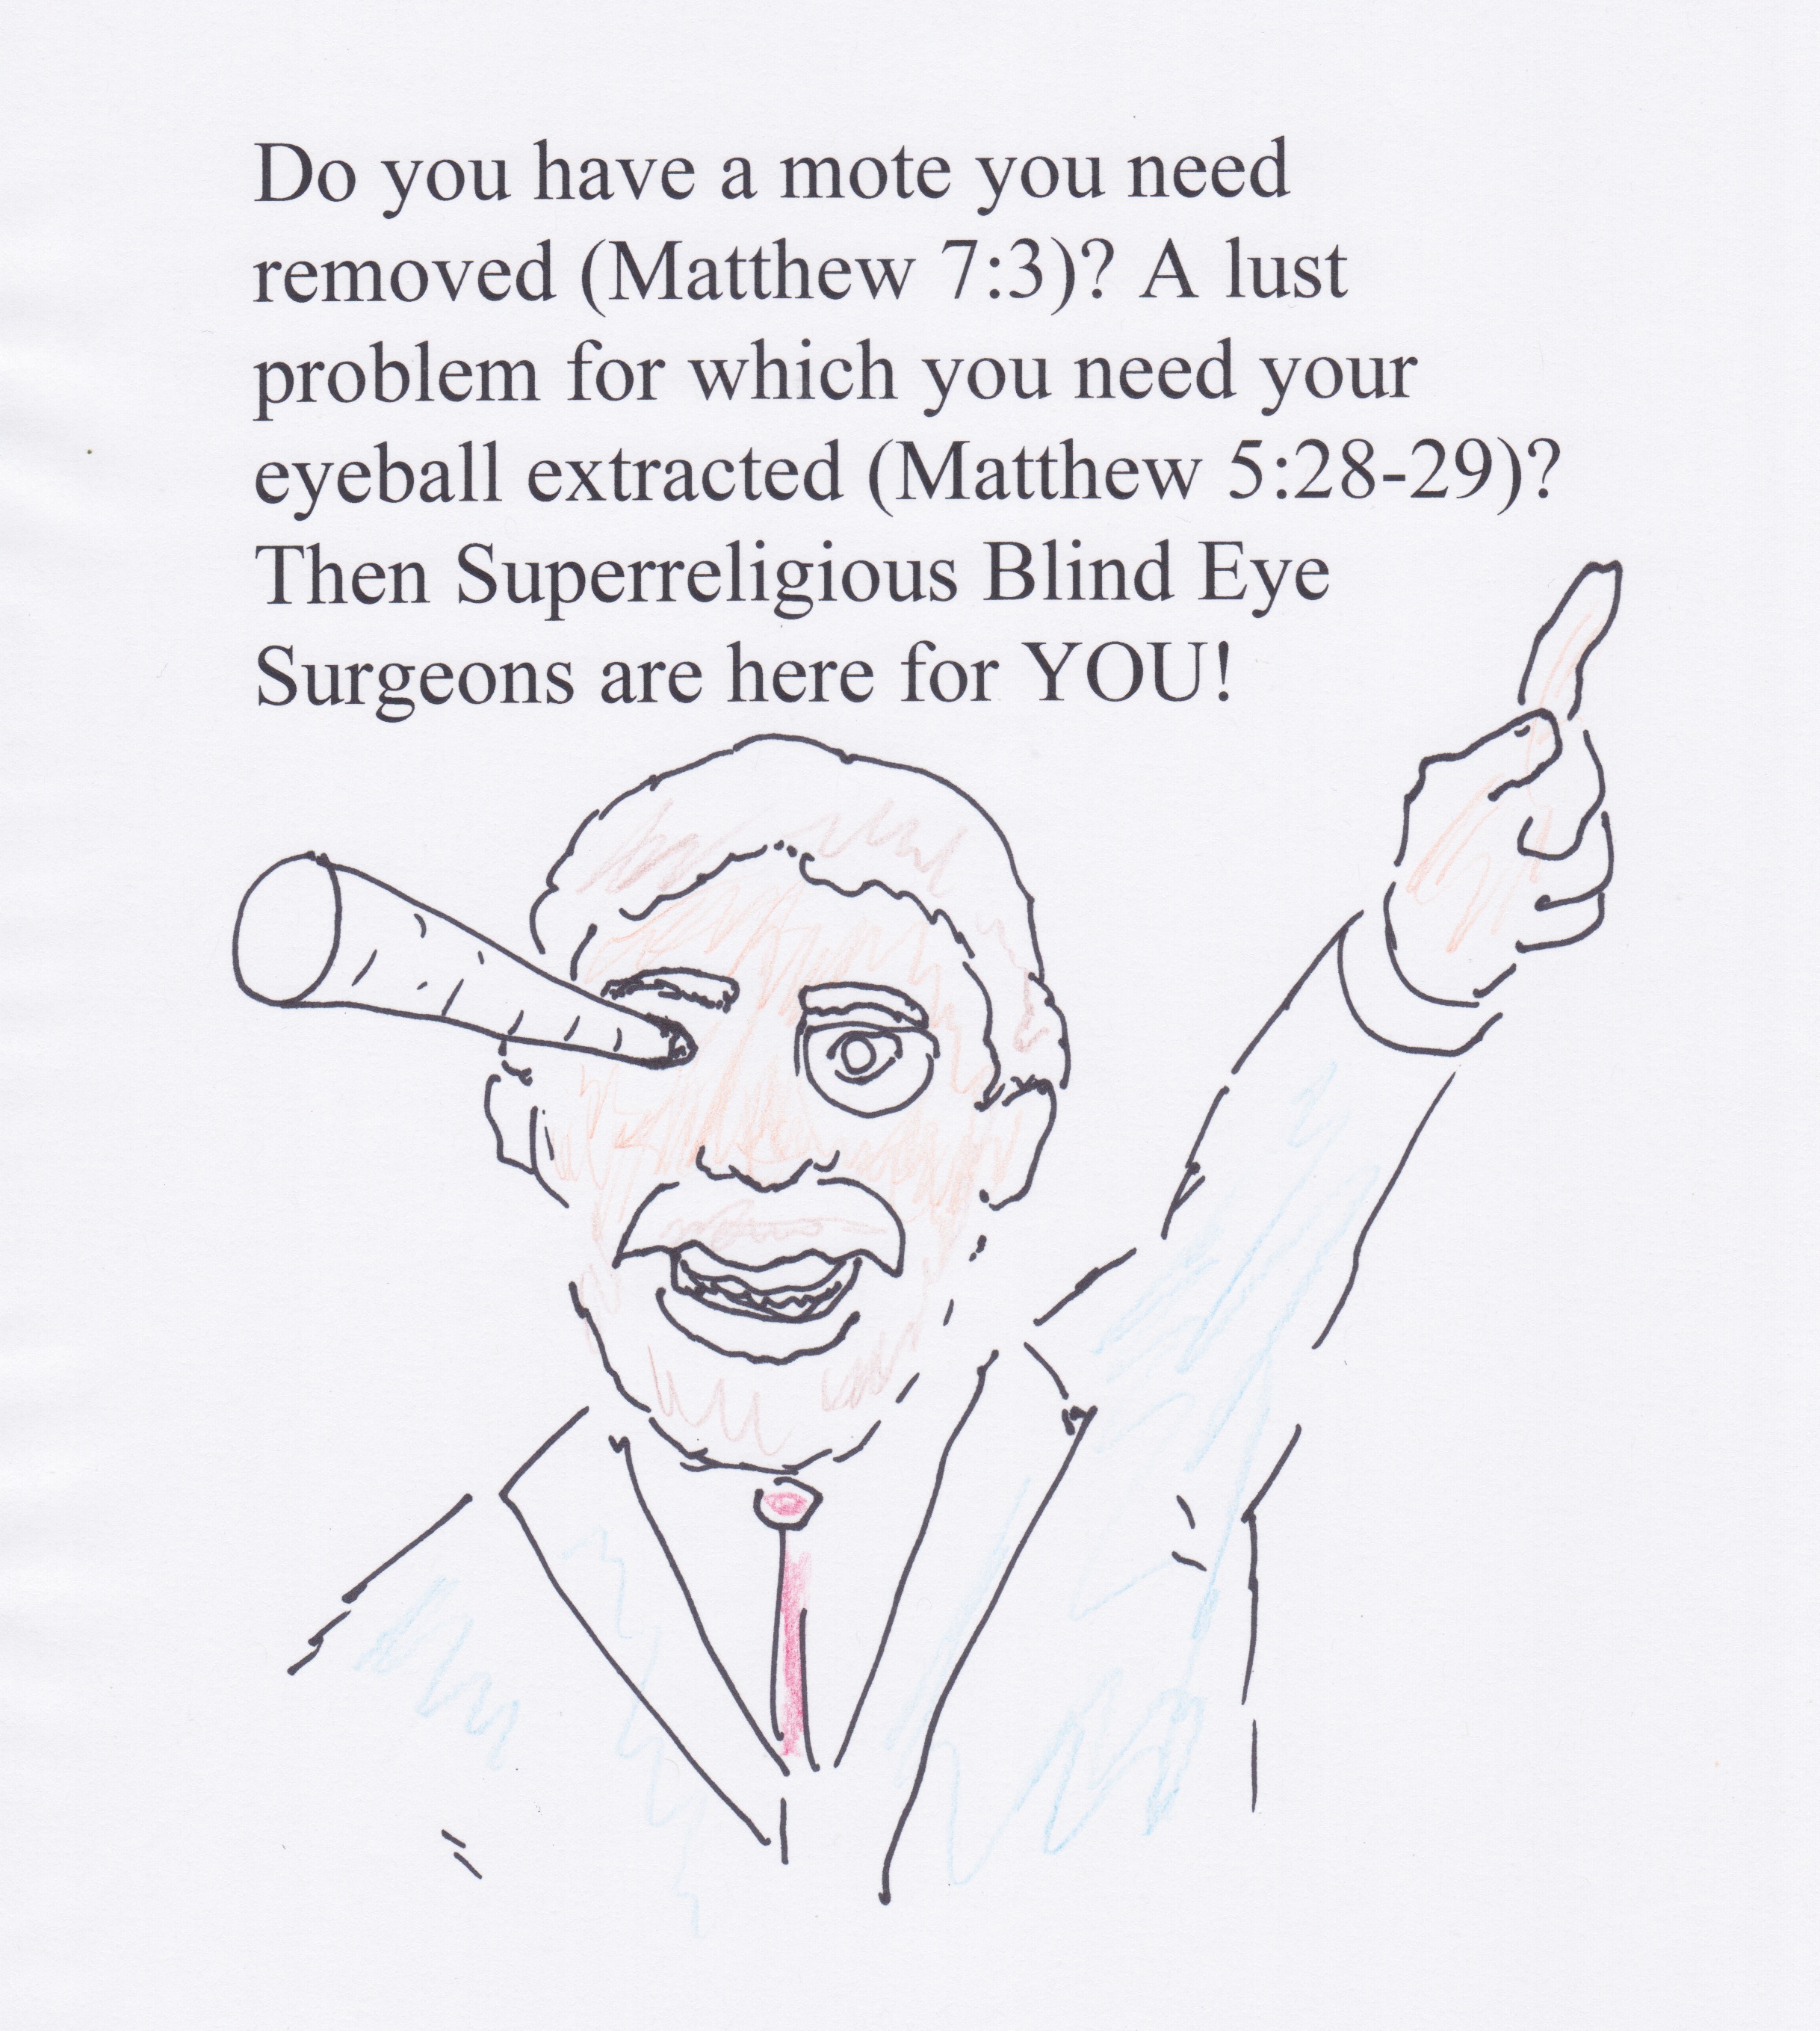 Do you have a mote you need
removed (Matthew 7:3)? A lust
problem for which you need your
eyeball extracted (Matthew 5:28-29)?
Then Superreligious Blind Eye
Surgeons are here for YOU!